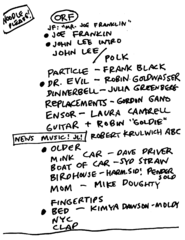 NOODLE
PLEASE.
ORF
JF: "MR. JOE FRANKLIN"
• JOE FRANKLIN
• JOHN LEE INTRO
JOHN LEE / POLK
PARTICLE - FRANK BLACK
• DR. EVIL - ROBIN GOLDWASSER
DINNERBELL - JULIA GREENBERG
REPLACEMENTS - GORDON GANO
ENSOR - LAURA CANTRELL
GUITAR + ROBIN "GOLDIE"
NEWS MUSIC! JL! ROBERT KRULWICH ABC
• OLDER
MINK CAR - DAVE DRIVER
BOAT OF CAR - SYD STRAW
BIRDHOUSE - HARM SOLO!
MOM - MIKE DOUGHTY
FINGERTIPS
• BED - KIMYA DAWSON - MOLDY
NYC
CLAP